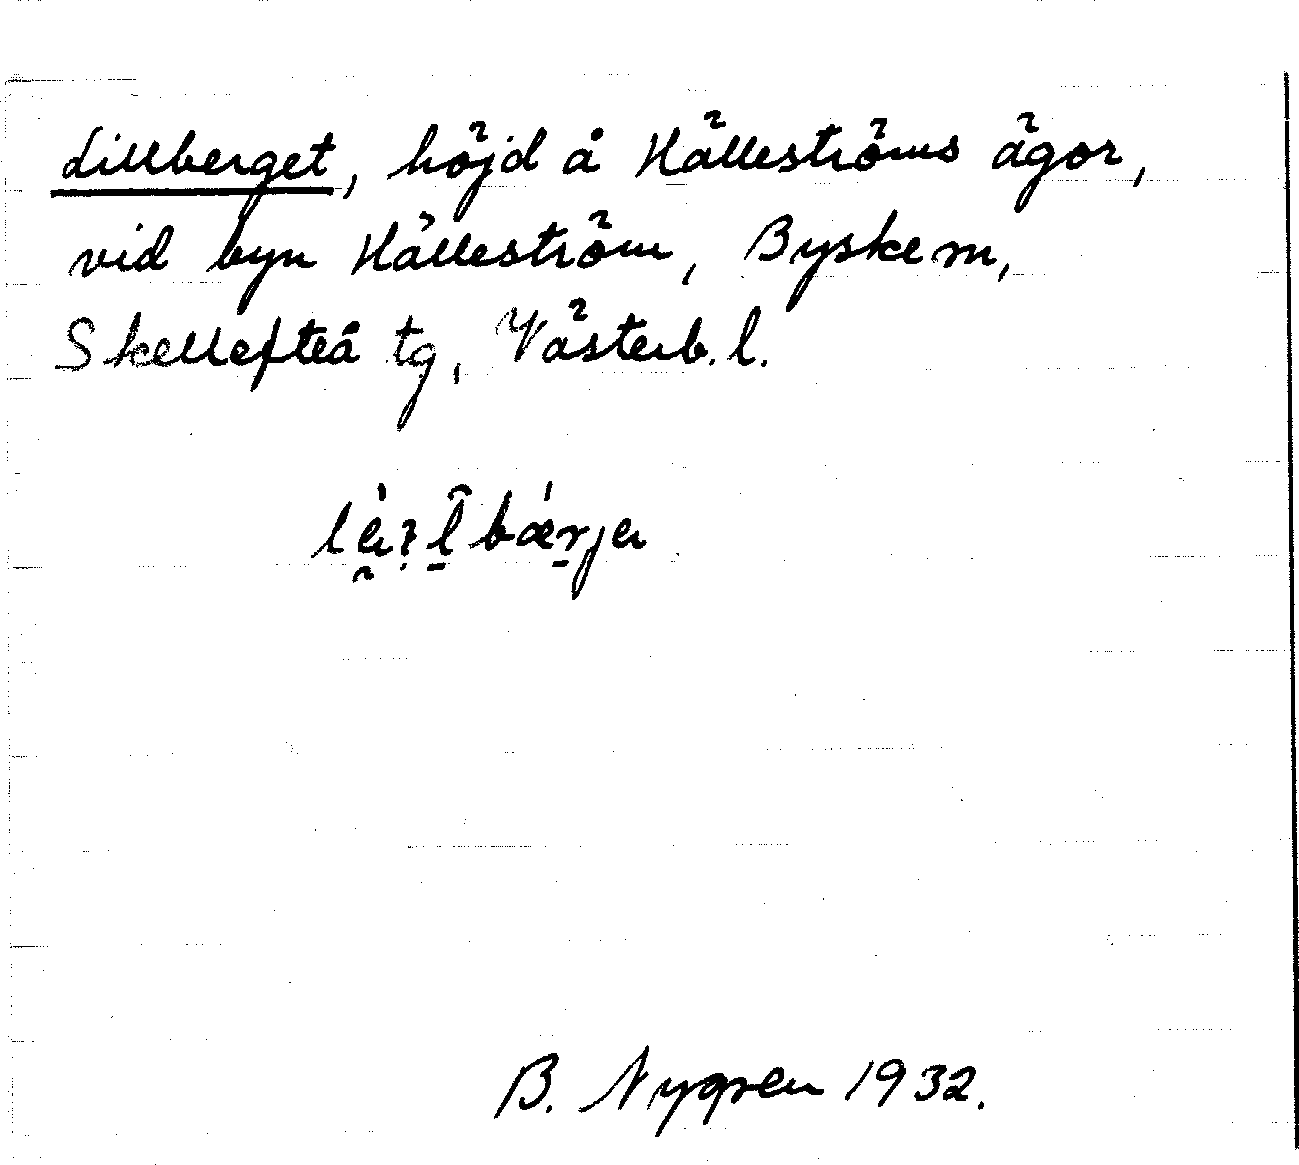 Lillberget, höjd å Hälleströms ägor,
vid byn Hälleström, Byske sn,
Skellefteå tg, Västerb. l.
B. Nygren 1932.